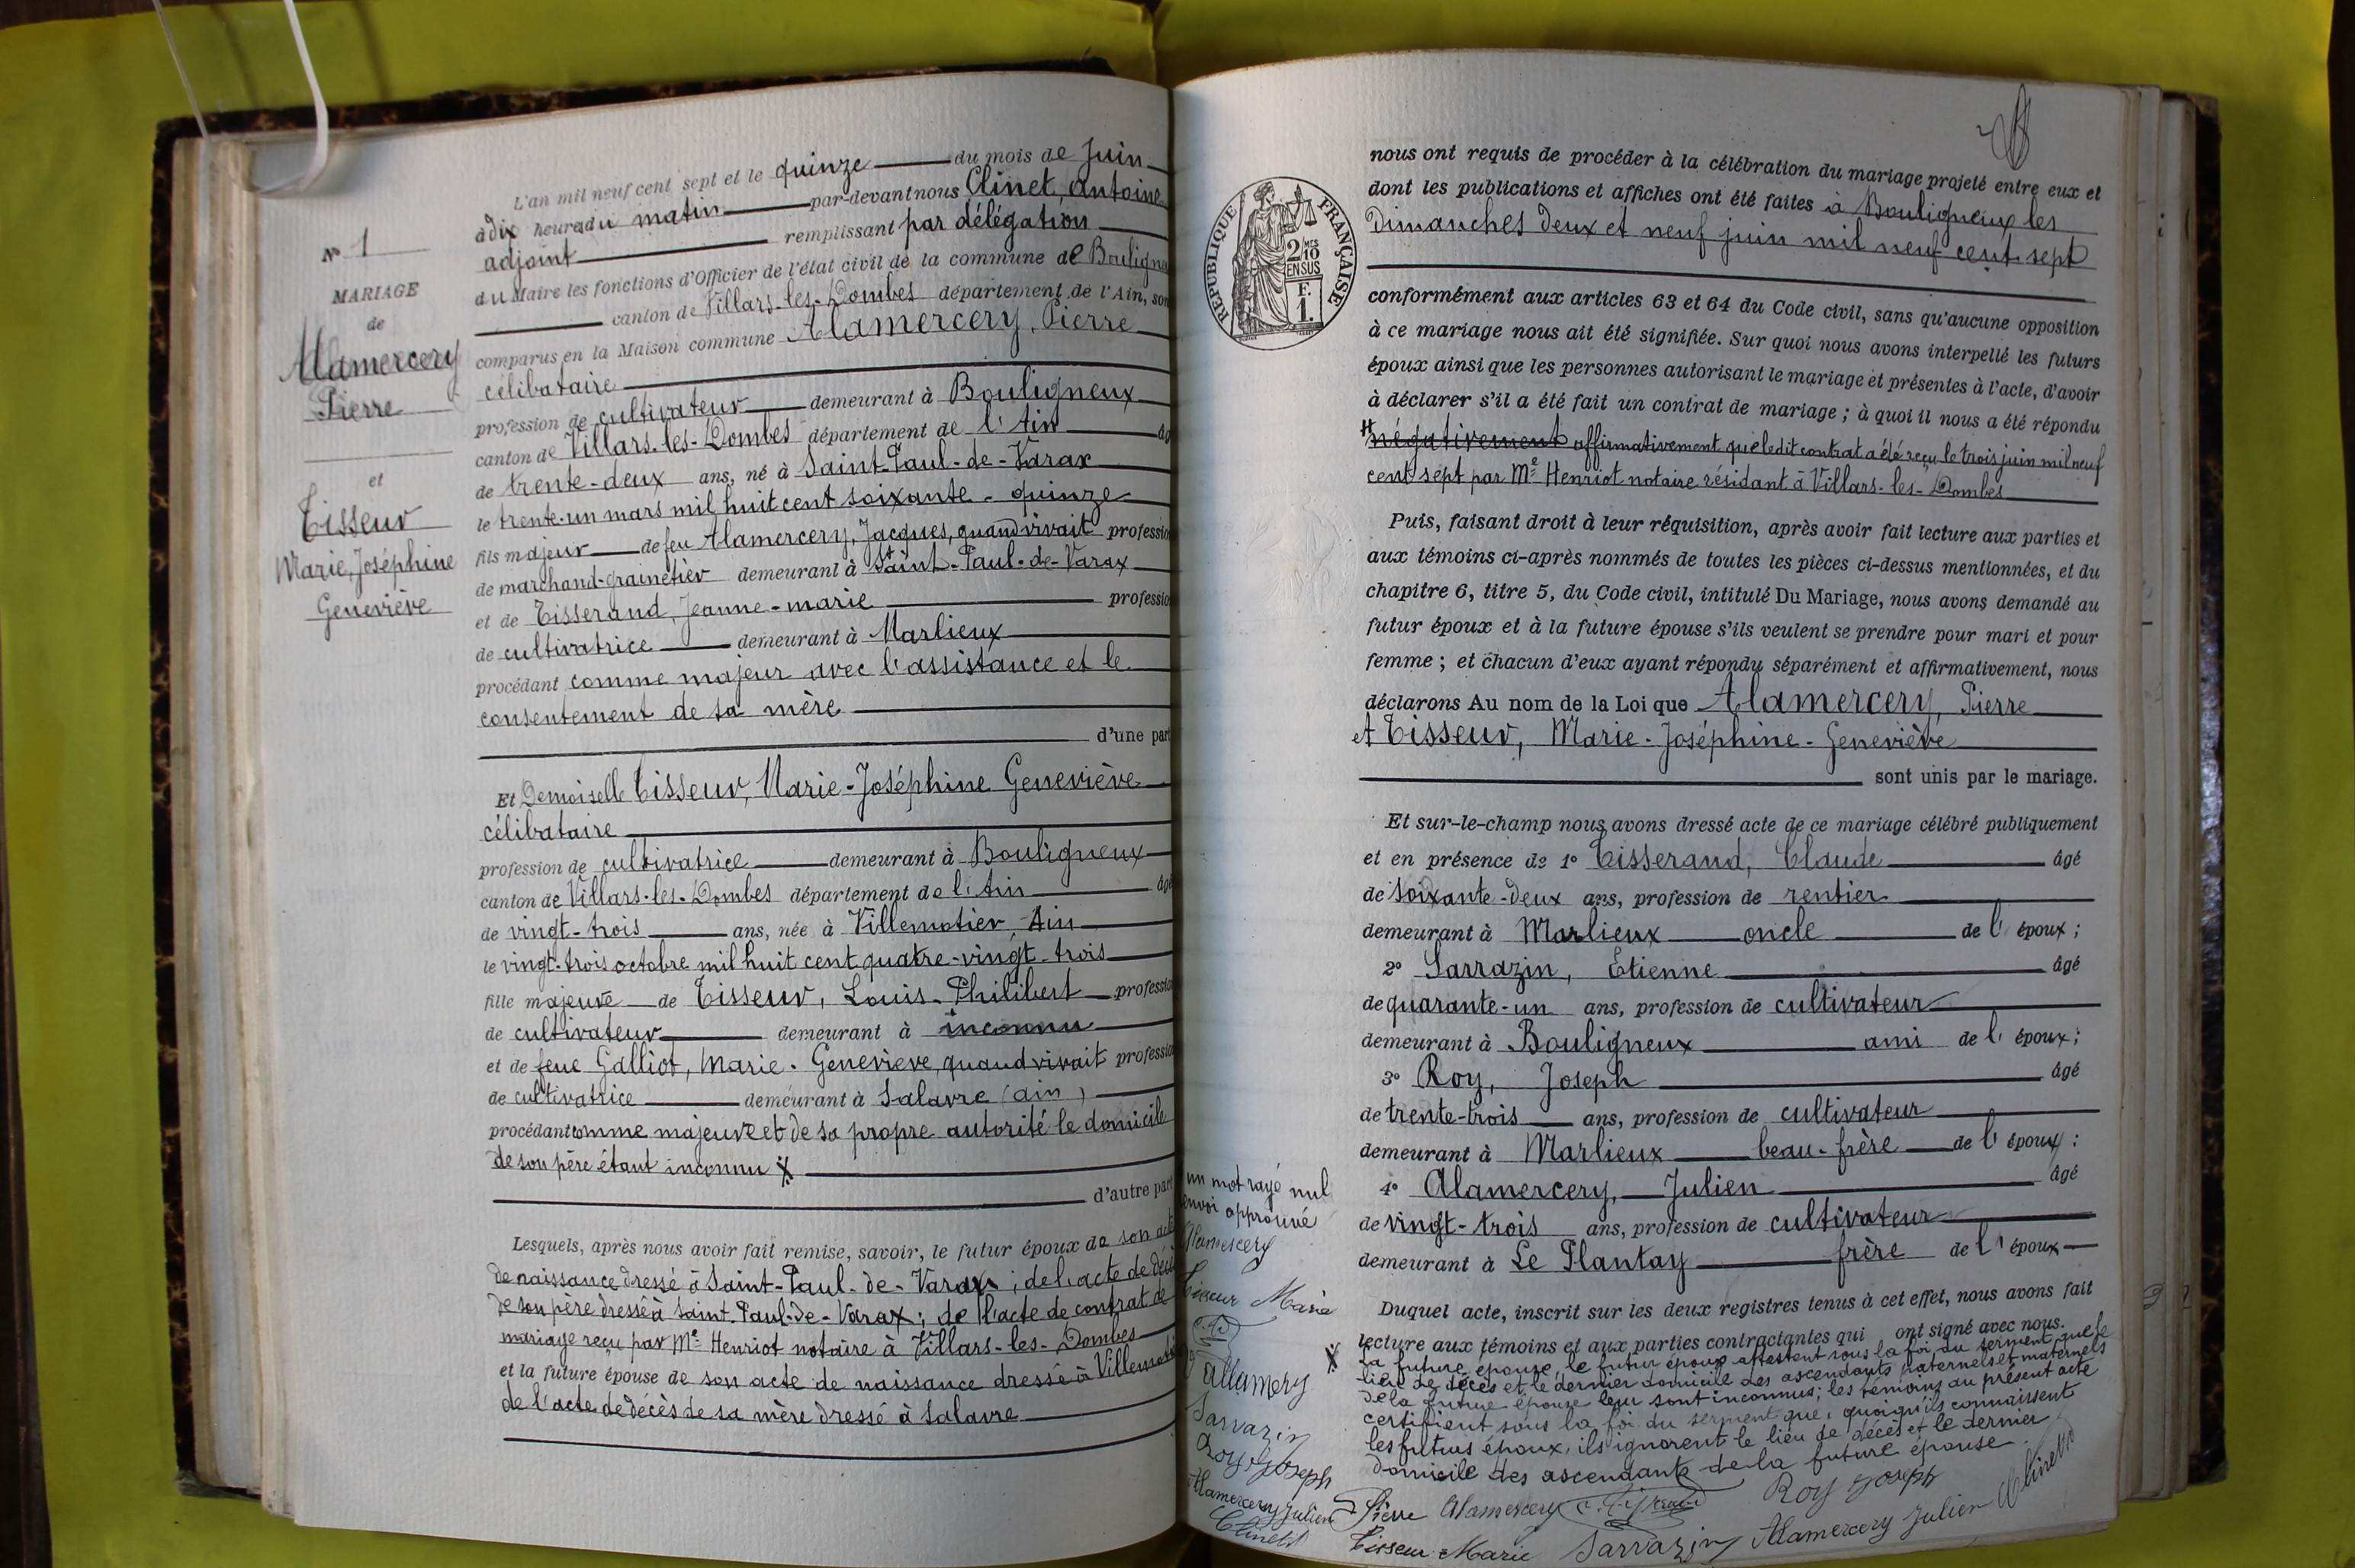 N° 1
MARIAGE
de
Alamercery
Pierre
et
Tisseur
Marie Joséphine
Geneviève
L'an mil neuf cent sept et le quinze du mois de Juin
à dix heures du matin par-devant nous Clinet, Antoine
adjoint remplissant par délégation
du Maire les fonctions d'Officier de l'état civil de la commune de Bouligneu
canton de Villars-les-Dombes département de l'Ain, son
comparus en la Maison commune Alamercery, Pierre
célibataire
profession de cultivateur demeurant à Bouligneux
canton de Villars-les-Dombes département de l'Ain âg
de trente-deux ans, né à Saint-Paul-de-Varax
le trente-un mars mil huit cent soixante-quinze
fils majeur de feu Alamercery, Jacques, quand vivait profession
de marchand-grainetier demeurant à Saint-Paul-de-Varax
et de Tisserand, Jeanne-marie profession
de cultivatrice demeurant à Marlieux
procédant comme majeur avec l'assistance et le
consentement de sa mère
d'une part
Et Demoiselle Tisseur, Marie-Joséphine Geneviève
célibataire
profession de cultivatrice demeurant à Bouligneux
canton de Villars-les-Dombes département de l'Ain âgé
de vingt-trois ans, née à Villemotier, Ain
le vingt-trois octobre mil huit cent quatre-vingt-trois
fille majeure de Tisseur, Louis-Philibert profession
de cultivateur demeurant à inconnu
et de feue Galliot, Marie-Geneviève, quand vivait profession
de cultivatrice demeurant à Salavre (ain)
procédant comme majeure et de sa propre autorité le domicile
de son père étant inconnu X
d'autre part
Lesquels, après nous avoir fait remise, savoir, le futur époux de son acte
de naissance dressé à Saint-Paul-de-Varax ; de l'acte de décè
de son père dressé à Saint-Paul-de-Varax ; de l'acte de contrat de
mariage reçu par Me Henriot notaire à Villars-les-Dombes
et la future épouse de son acte de naissance dressé à Villemoti
de l'acte de décès de sa mère dressé à Salavre
RÉPUBLIQUE FRANÇAISE
2 MES
10
EN SUS
F.
1.
nous ont requis de procéder à la célébration du mariage projeté entre eux et
dont les publications et affiches ont été faites à Bouligneux les
dimanches deux et neuf juin mil neuf cent sept
conformément aux articles 63 et 64 du Code civil, sans qu'aucune opposition
à ce mariage nous ait été signifiée. Sur quoi nous avons interpellé les futurs
époux ainsi que les personnes autorisant le mariage et présentes à l'acte, d'avoir
à déclarer s'il a été fait un contrat de mariage ; à quoi il nous a été répondu
négativement affirmativement que ledit contrat a été reçu le trois juin mil neuf
cent sept par Me Henriot notaire résidant à Villars-les-Dombes
Puis, faisant droit à leur réquisition, après avoir fait lecture aux parties et
aux témoins ci-après nommés de toutes les pièces ci-dessus mentionnées, et du
chapitre 6, titre 5, du Code civil, intitulé Du Mariage, nous avons demandé au
futur époux et à la future épouse s'ils veulent se prendre pour mari et pour
femme ; et chacun d'eux ayant répondu séparément et affirmativement, nous
déclarons Au nom de la Loi que Alamercery, Pierre
et Tisseur, Marie-Joséphine-Geneviève
sont unis par le mariage.
Et sur-le-champ nous avons dressé acte de ce mariage célébré publiquement
et en présence de 1° Tisserand, Claude âgé
de soixante-deux ans, profession de rentier
demeurant à Marlieux oncle de l'époux ;
2° Sarrazin, Etienne âgé
de quarante-un ans, profession de cultivateur
demeurant à Bouligneux ami de l'époux ;
3° Roy, Joseph âgé
de trente-trois ans, profession de cultivateur
demeurant à Marlieux beau-frère de l'époux ;
4° Alamercery, Julien âgé
de vingt-trois ans, profession de cultivateur
demeurant à Le Plantay frère de l'époux
Duquel acte, inscrit sur les deux registres tenus à cet effet, nous avons fait
lecture aux témoins et aux parties contractantes qui ont signé avec nous.
X la future épouse, le futur époux attestent sous la foi du serment que le
lieu de décès et le dernier domicile des ascendants paternels et maternels
de la future épouse leur sont inconnus ; les témoins du présent acte
certifient sous la foi du serment que, quoiqu'ils connaissent
les futurs époux, ils ignorent le lieu de décès et le dernier
domicile des ascendants de la future épouse.
Pierre Alamercery Roy Joseph
Tisseur Marie Sarrazin Alamercery Julien Clinet
un mot rayé nul
envoi approuvé
Alamercery
Tisseur Marie
Sarrazin
Roy Joseph
Alamercery Julien
Clinet